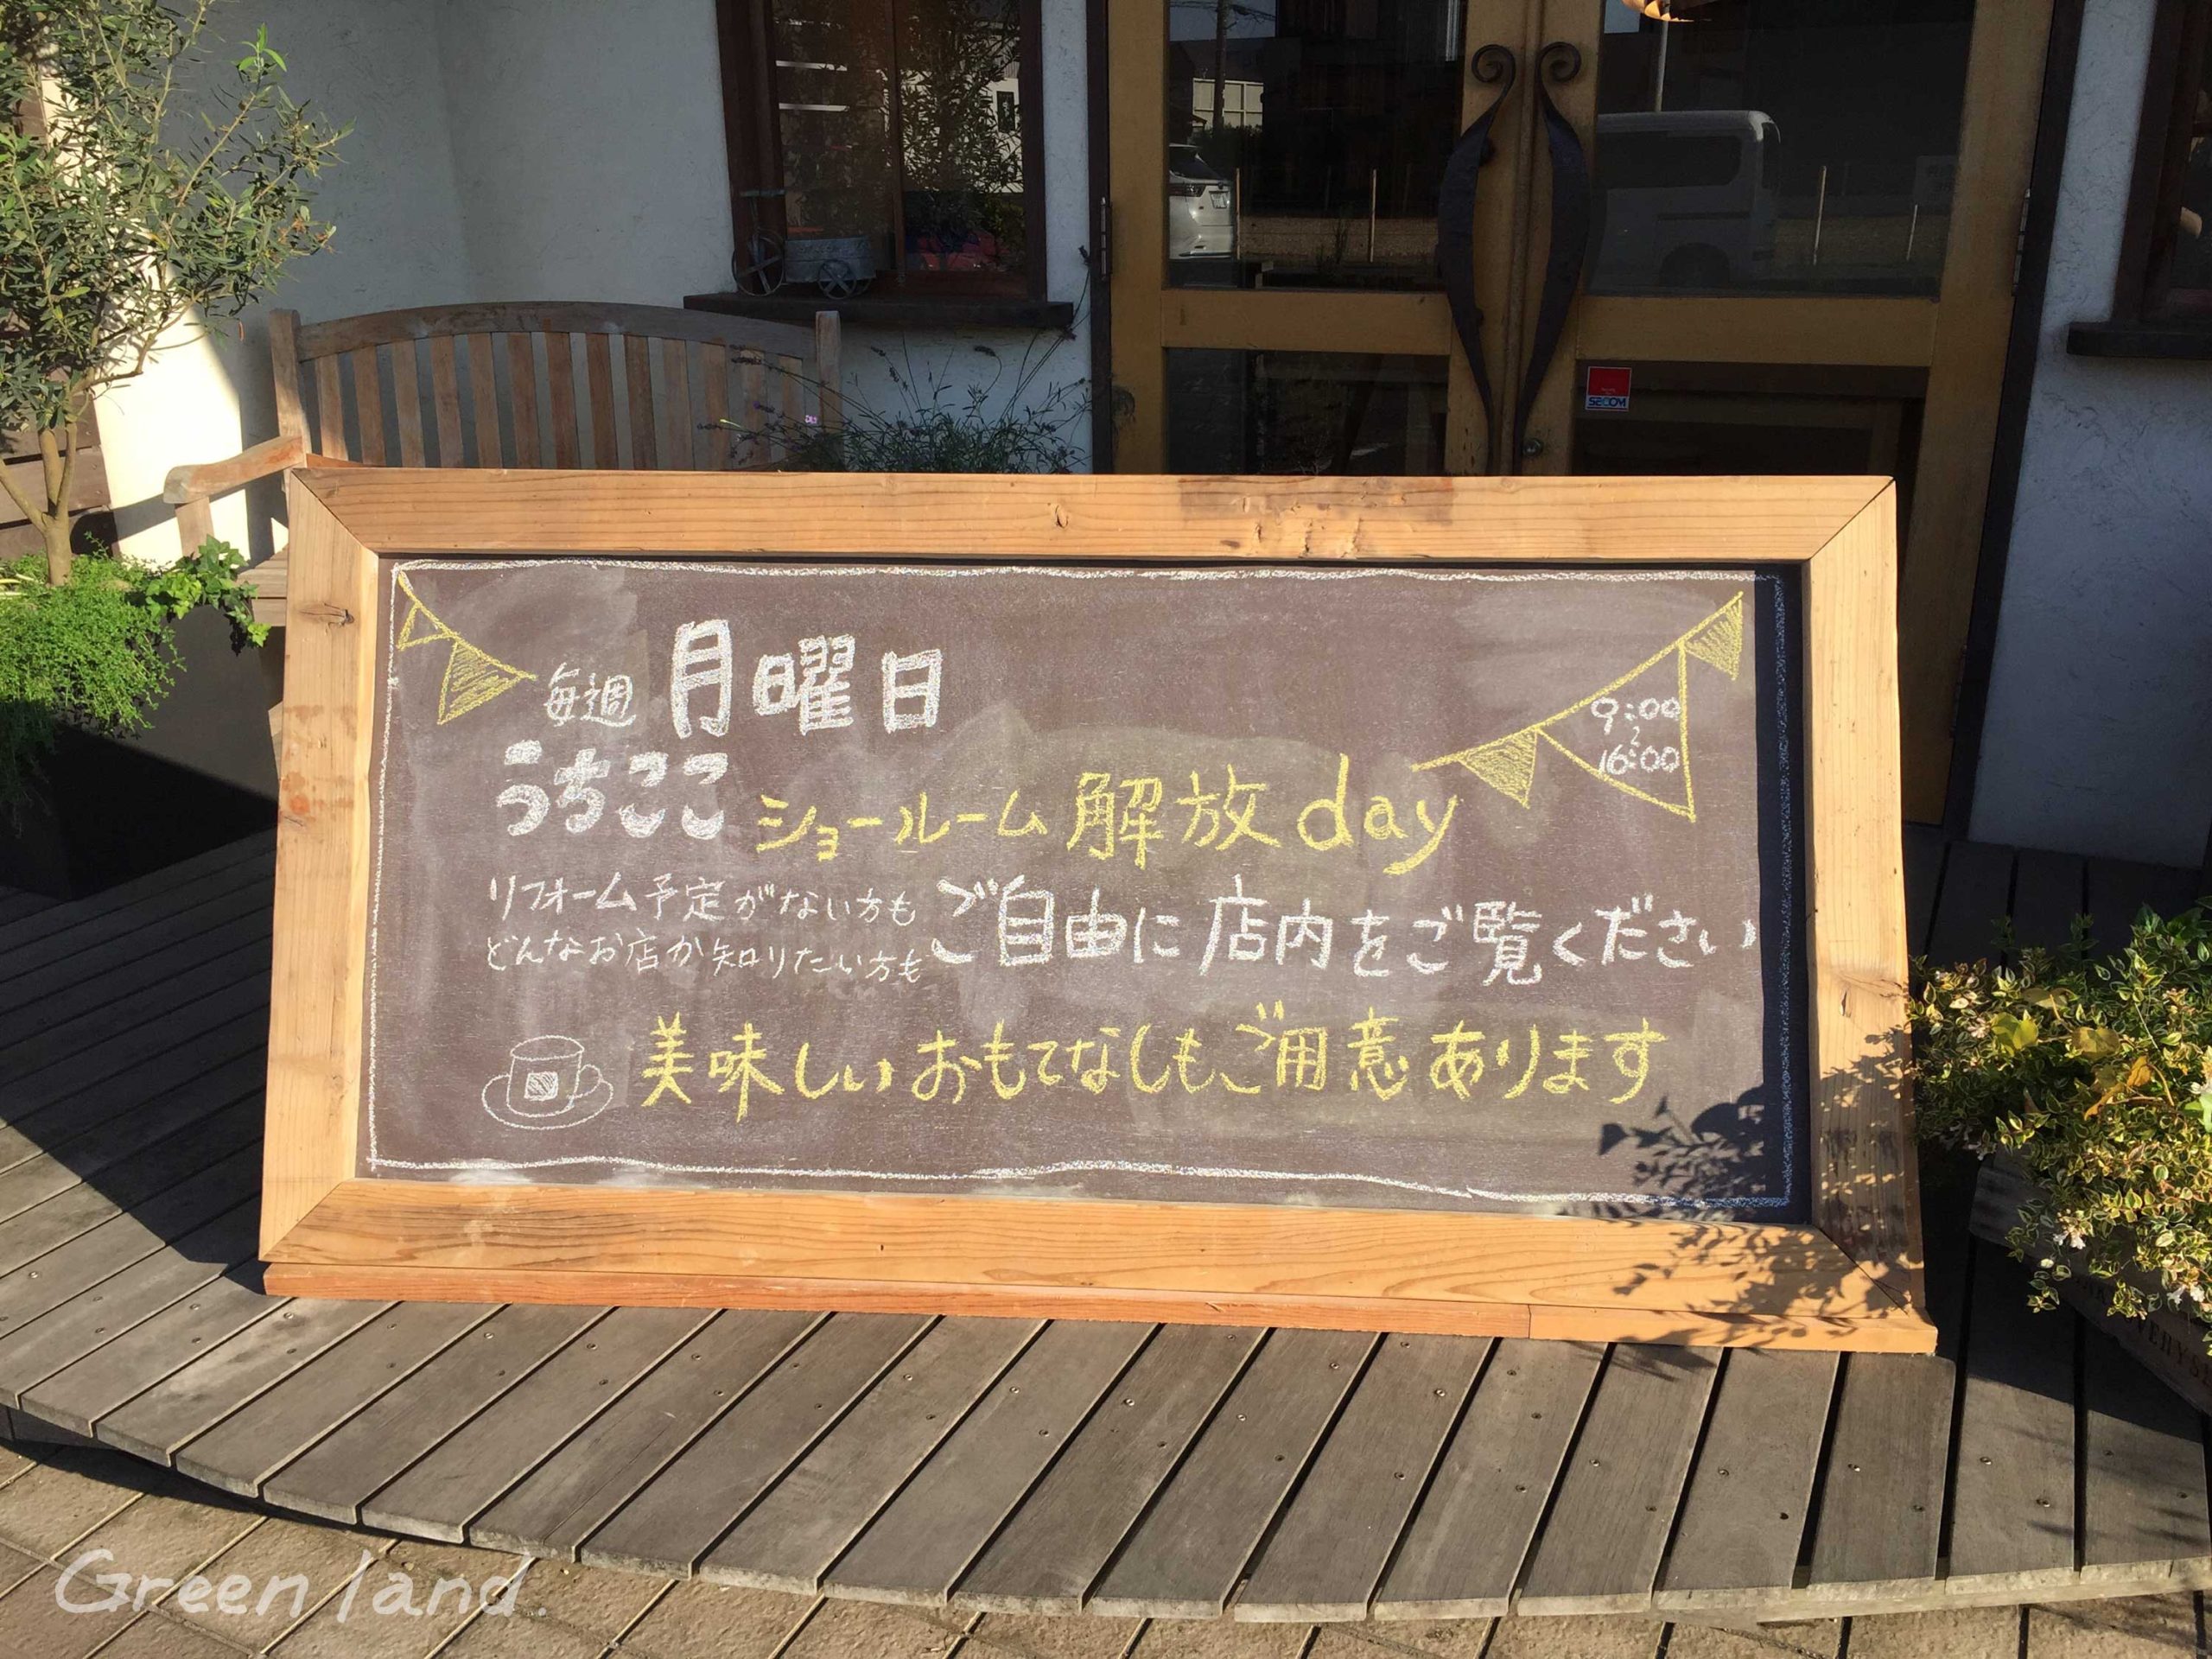 毎週 月曜日
9:00
~
16:00
うちここ ショールーム 解放 day
リフォーム予定がない方も
どんなお店か知りたい方も
ご自由に店内をご覧ください
美味しいおもてなしもご用意あります
SECOM
Green land.